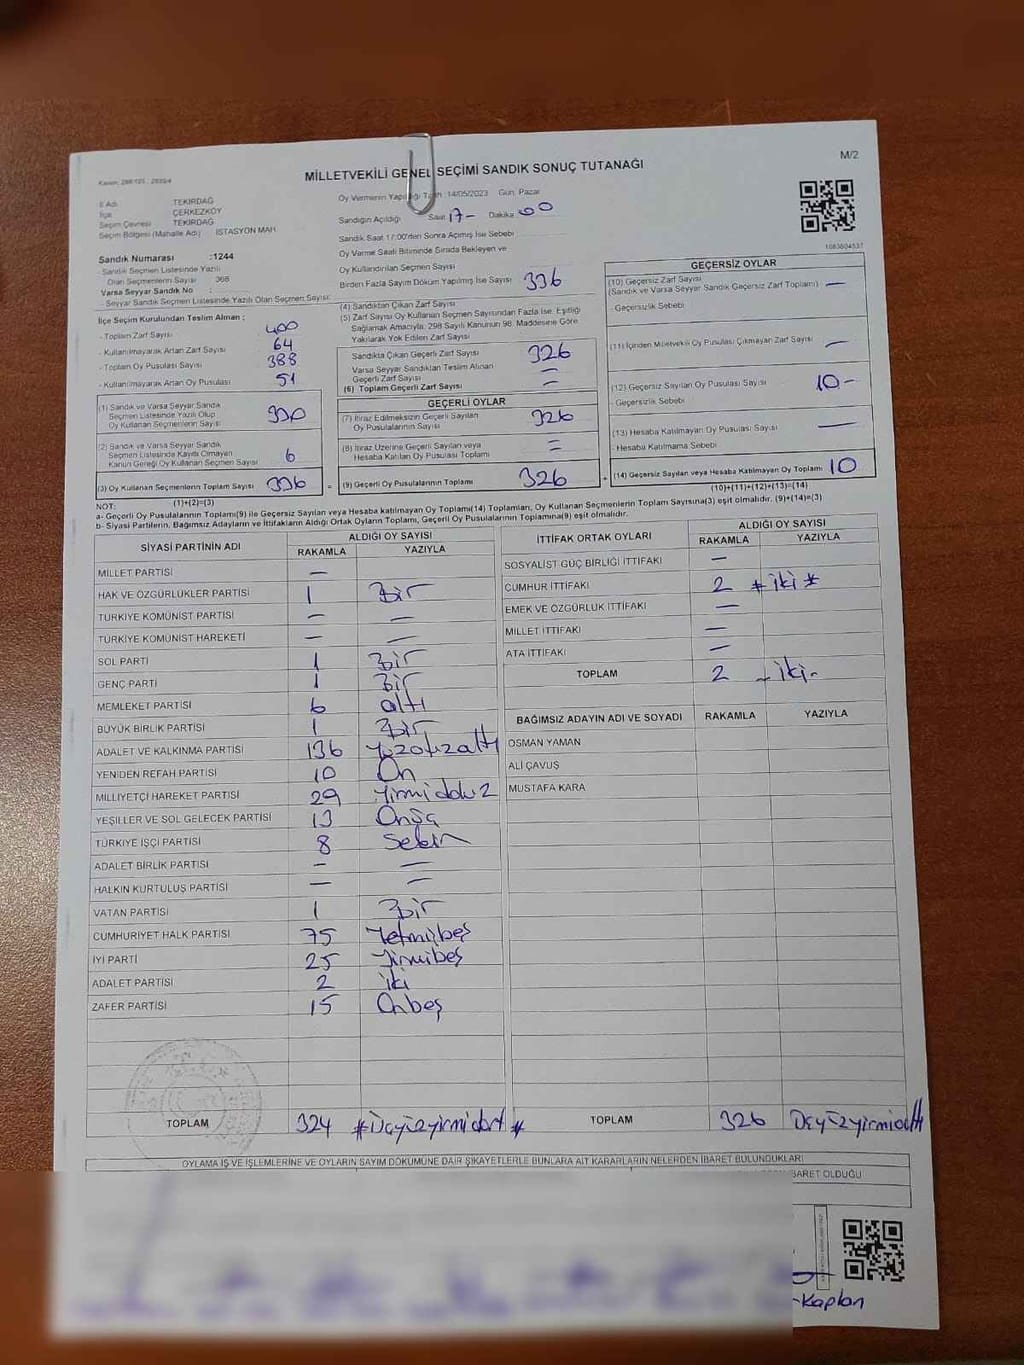 MİLLETVEKİLİ GENEL SEÇİMİ SANDIK SONUÇ TUTANAĞI
M/2
İl Adı TEKİRDAĞ
İlçe ÇERKEZKÖY
Seçim Çevresi TEKİRDAĞ
Seçim Bölgesi (Mahalle Adı) İSTASYON MAH.
Oy Vermenin Yapıldığı Tarih :14/05/2023 Gün: Pazar
Sandığın Açıldığı Saat 17- Dakika 00
Sandık Saat 17:00'den Sonra Açılmış İse Sebebi
Oy Verme Saati Bitiminde Sırada Bekleyen ve
Oy Kullandırılan Seçmen Sayısı
Birden Fazla Sayım Döküm Yapılmış İse Sayısı 336
1083804537
Sandık Numarası :1244
- Sandık Seçmen Listesinde Yazılı
Olan Seçmenlerin Sayısı 368
Varsa Seyyar Sandık No :
- Seyyar Sandık Seçmen Listesinde Yazılı Olan Seçmen Sayısı:
İlçe Seçim Kurulundan Teslim Alınan ;
- Toplam Zarf Sayısı 400
- Kullanılmayarak Artan Zarf Sayısı 64
- Toplam Oy Pusulası Sayısı 388
- Kullanılmayarak Artan Oy Pusulası 51
(1) Sandık ve Varsa Seyyar Sandık
Seçmen Listesinde Yazılı Olup
Oy Kullanan Seçmenlerin Sayısı 330
(2) Sandık ve Varsa Seyyar Sandık
Seçmen Listesinde Kaydı Olmayan
Kanun Gereği Oy Kullanan Seçmen Sayısı 6
(3) Oy Kullanan Seçmenlerin Toplam Sayısı 336
(1)+(2)=(3)
(4) Sandıktan Çıkan Zarf Sayısı
(5) Zarf Sayısı Oy Kullanan Seçmen Sayısından Fazla İse, Eşitliği
Sağlamak Amacıyla, 298 Sayılı Kanunun 98. Maddesine Göre
Yakılarak Yok Edilen Zarf Sayısı
Sandıkta Çıkan Geçerli Zarf Sayısı 326
Varsa Seyyar Sandıktan Teslim Alınan
Geçerli Zarf Sayısı =
(6) Toplam Geçerli Zarf Sayısı
GEÇERLİ OYLAR
(7) İtiraz Edilmeksizin Geçerli Sayılan
Oy Pusulasının Sayısı 326
(8) İtiraz Üzerine Geçerli Sayılan veya
Hesaba Katılan Oy Pusulası Toplamı =
= (9) Geçerli Oy Pusulalarının Toplamı 326
GEÇERSİZ OYLAR
(10) Geçersiz Zarf Sayısı
(Sandık ve Varsa Seyyar Sandık Geçersiz Zarf Toplamı) —
- Geçersizlik Sebebi
(11) İçinden Milletvekili Oy Pusulası Çıkmayan Zarf Sayısı —
(12) Geçersiz Sayılan Oy Pusulası Sayısı 10-
- Geçersizlik Sebebi
(13) Hesaba Katılmayan Oy Pusulası Sayısı —
- Hesaba Katılmama Sebebi
+ (14) Geçersiz Sayılan veya Hesaba Katılmayan Oy Toplamı 10
(10)+(11)+(12)+(13)=(14)
NOT:
a- Geçerli Oy Pusulalarının Toplamı(9) ile Geçersiz Sayılan veya Hesaba katılmayan Oy Toplamı(14) Toplamları, Oy Kullanan Seçmenlerin Toplam Sayısına(3) eşit olmalıdır. (9)+(14)=(3)
b- Siyasi Partilerin, Bağımsız Adayların ve İttifakların Aldığı Ortak Oyların Toplamı, Geçerli Oy Pusulalarının Toplamına(9) eşit olmalıdır.
SİYASİ PARTİNİN ADI ALDIĞI OY SAYISI
RAKAMLA YAZIYLA
MİLLET PARTİSİ —
HAK VE ÖZGÜRLÜKLER PARTİSİ 1 Bir
TÜRKİYE KOMÜNİST PARTİSİ — —
TÜRKİYE KOMÜNİST HAREKETİ — —
SOL PARTİ 1 Bir
GENÇ PARTİ 1 Bir
MEMLEKET PARTİSİ 6 altı
BÜYÜK BİRLİK PARTİSİ 1 Bir
ADALET VE KALKINMA PARTİSİ 136 Yüzotuzaltı
YENİDEN REFAH PARTİSİ 10 On
MİLLİYETÇİ HAREKET PARTİSİ 29 Yirmidokuz
YEŞİLLER VE SOL GELECEK PARTİSİ 13 Onüç
TÜRKİYE İŞÇİ PARTİSİ 8 Sekiz
ADALET BİRLİK PARTİSİ — —
HALKIN KURTULUŞ PARTİSİ — —
VATAN PARTİSİ 1 Bir
CUMHURİYET HALK PARTİSİ 75 Yetmişbeş
İYİ PARTİ 25 Yirmibeş
ADALET PARTİSİ 2 iki
ZAFER PARTİSİ 15 Onbeş
TOPLAM 324 *Üçyüzyirmidört*
İTTİFAK ORTAK OYLARI ALDIĞI OY SAYISI
RAKAMLA YAZIYLA
SOSYALİST GÜÇ BİRLİĞİ İTTİFAKI —
CUMHUR İTTİFAKI 2 *iki*
EMEK VE ÖZGÜRLÜK İTTİFAKI —
MİLLET İTTİFAKI —
ATA İTTİFAKI —
TOPLAM 2 -iki-
BAĞIMSIZ ADAYIN ADI VE SOYADI RAKAMLA YAZIYLA
OSMAN YAMAN
ALİ ÇAVUŞ
MUSTAFA KARA
TOPLAM 326 Üçyüzyirmialtı
OYLAMA İŞ VE İŞLEMLERİNE VE OYLARIN SAYIM DÖKÜMÜNE DAİR ŞİKAYETLERLE BUNLARA AİT KARARLARIN NELERDEN İBARET BULUNDUKLARI
İBARET OLDUĞU
Kaplan